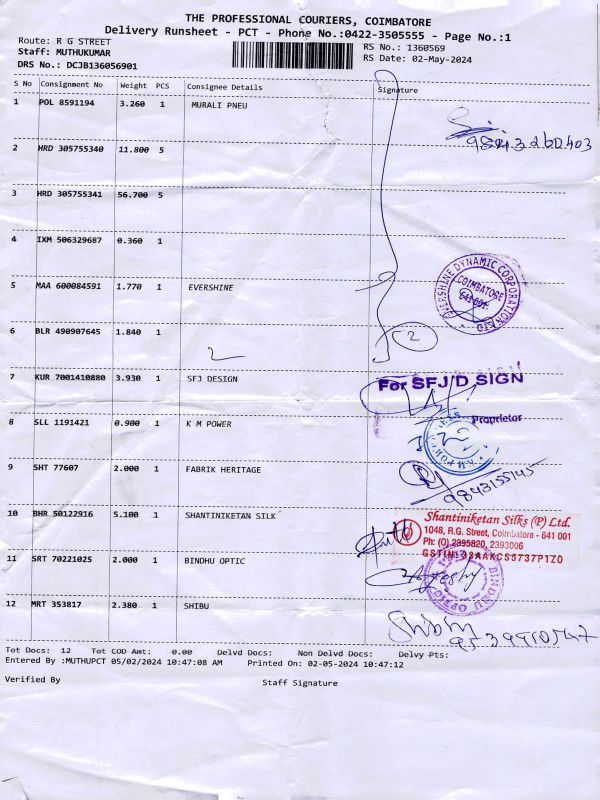 THE PROFESSIONAL COURIERS, COIMBATORE
Delivery Runsheet - PCT - Phone No.:0422-3505555 - Page No.:1
Route: R G STREET
RS No.: 1360569
Staff: MUTHUKUMAR
RS Date: 02-May-2024
DRS No.: DCJB136056901
S No Consignment No Weight PCS Consignee Details Signature
1 POL 8591194 3.260 1 MURALI PNEU
2 HRD 305755340 11.800 5
3 HRD 305755341 56.700 5
4 IXM 506329687 0.360 1
5 MAA 600084591 1.770 1 EVERSHINE
EVERSHINE DYNAMIC CORPORATION
COIMBATORE
641 001
6 BLR 490907645 1.840 1
2
2
7 KUR 7001410880 3.930 1 SFJ DESIGN
For SFJ/D SIGN
Proprietor
8 SLL 1191421 0.900 1 K M POWER
9 SHT 77607 2.000 1 FABRIK HERITAGE
9843155145
10 BHR 50122916 5.100 1 SHANTINIKETAN SILK
Shantiniketan Silks (P) Ltd.
1048, R.G. Street, Coimbatore - 641 001
Ph: (O) 2395820, 2393006
11 SRT 70221025 2.000 1 BINDHU OPTIC
BINDHU OPTIC
12 MRT 353817 2.380 1 SHIBU
Shibu
Tot Docs: 12 Tot COD Amt: 0.00 Delvd Docs: Non Delvd Docs: Delvy Pts:
Entered By :MUTHUPCT 05/02/2024 10:47:08 AM Printed On: 02-05-2024 10:47:12
Verified By Staff Signature